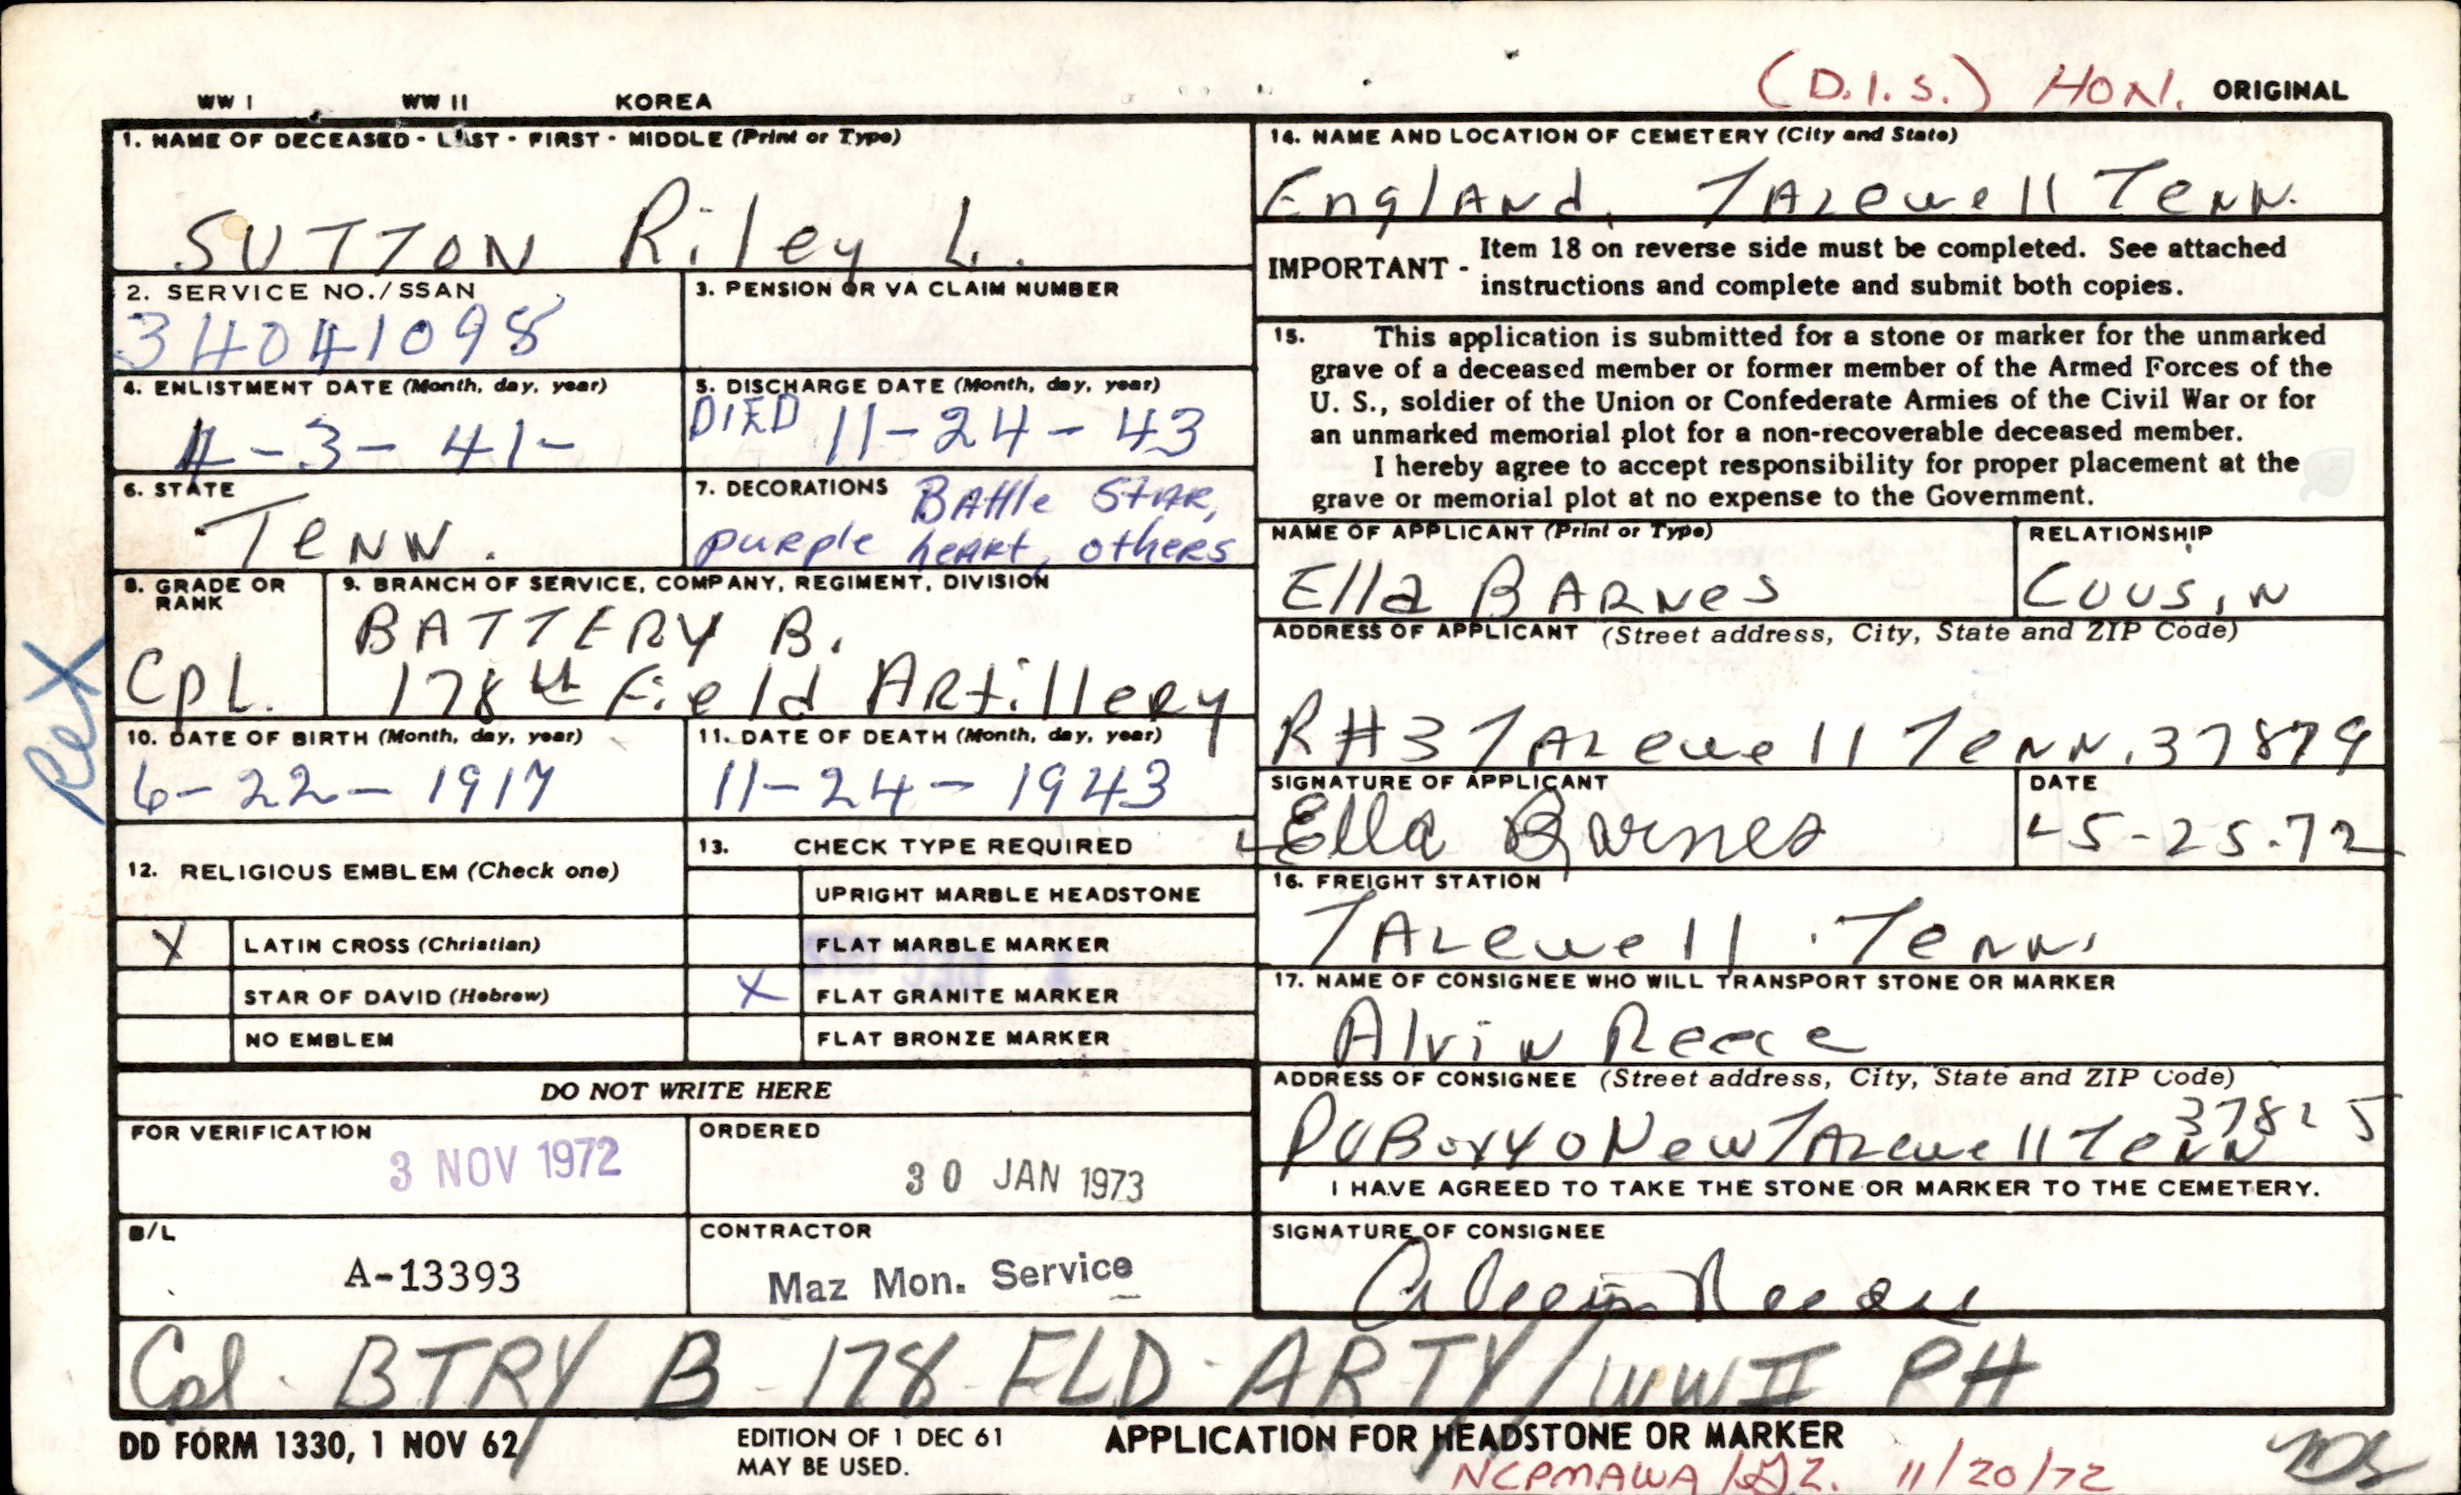 (D.I.S.) HON. ORIGINAL
WW I WW II KOREA
1. NAME OF DECEASED - LAST - FIRST - MIDDLE (Print or Type)
SUTTON Riley L.
2. SERVICE NO./SSAN
34041098
3. PENSION OR VA CLAIM NUMBER
4. ENLISTMENT DATE (Month, day, year)
4-3-41-
5. DISCHARGE DATE (Month, day, year)
DIED 11-24-43
6. STATE
TENN.
7. DECORATIONS BAttle STAR,
purple heart, others
8. GRADE OR
RANK
CpL.
9. BRANCH OF SERVICE, COMPANY, REGIMENT, DIVISION
BATTERY B.
178th Field ARtillery
10. DATE OF BIRTH (Month, day, year)
6-22-1917
11. DATE OF DEATH (Month, day, year)
11-24-1943
12. RELIGIOUS EMBLEM (Check one)
X LATIN CROSS (Christian)
STAR OF DAVID (Hebrew)
NO EMBLEM
13. CHECK TYPE REQUIRED
UPRIGHT MARBLE HEADSTONE
FLAT MARBLE MARKER
X FLAT GRANITE MARKER
FLAT BRONZE MARKER
DO NOT WRITE HERE
FOR VERIFICATION
3 NOV 1972
ORDERED
30 JAN 1973
B/L
A-13393
CONTRACTOR
Maz Mon. Service
14. NAME AND LOCATION OF CEMETERY (City and State)
England, TAZewell TeNN.
IMPORTANT - Item 18 on reverse side must be completed. See attached
instructions and complete and submit both copies.
15. This application is submitted for a stone or marker for the unmarked
grave of a deceased member or former member of the Armed Forces of the
U. S., soldier of the Union or Confederate Armies of the Civil War or for
an unmarked memorial plot for a non-recoverable deceased member.
I hereby agree to accept responsibility for proper placement at the
grave or memorial plot at no expense to the Government.
NAME OF APPLICANT (Print or Type)
Ella BARNes
RELATIONSHIP
COUSIN
ADDRESS OF APPLICANT (Street address, City, State and ZIP Code)
R#3 TAZewell TeNN. 37879
SIGNATURE OF APPLICANT
Ella Barnes
DATE
5-25-72
16. FREIGHT STATION
TAZewell TeNN.
17. NAME OF CONSIGNEE WHO WILL TRANSPORT STONE OR MARKER
AlviN Reece
ADDRESS OF CONSIGNEE (Street address, City, State and ZIP Code)
37825
POBox 40 New TAZewell TeNN
I HAVE AGREED TO TAKE THE STONE OR MARKER TO THE CEMETERY.
SIGNATURE OF CONSIGNEE
Alvin Reece
Cpl. BTRY B 178 FLD ARTY/WWII PH
DD FORM 1330, 1 NOV 62
EDITION OF 1 DEC 61
MAY BE USED.
APPLICATION FOR HEADSTONE OR MARKER
NCPMAWA 11/20/72
Rex